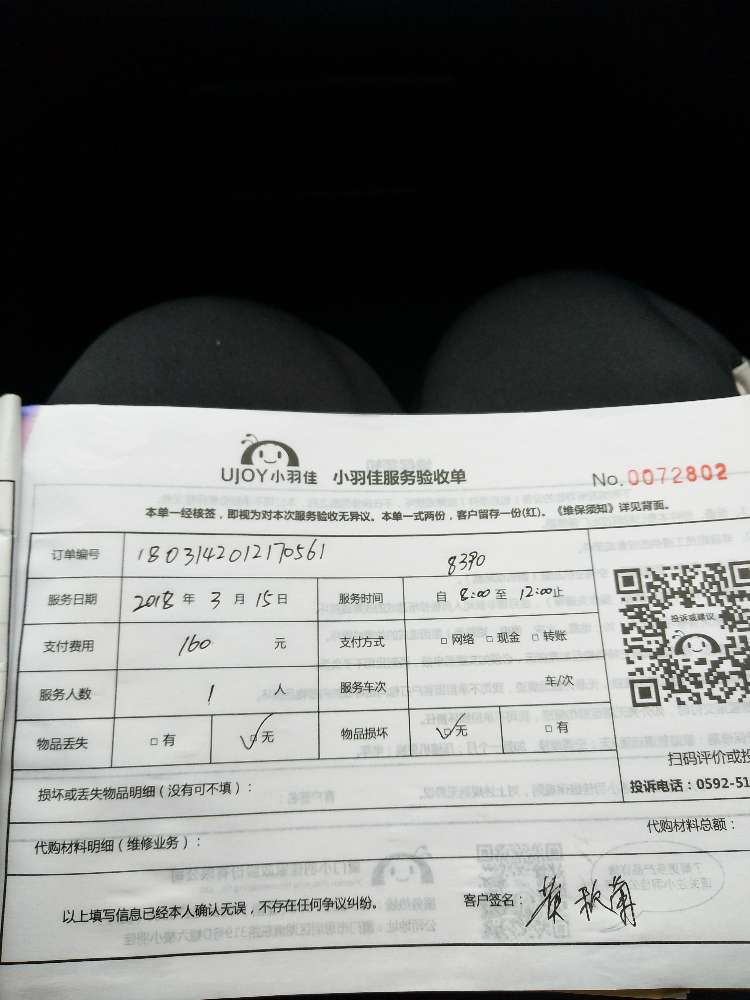 UJOY小羽佳 小羽佳服务验收单 No.0072802
本单一经核签，即视为对本次服务验收无异议。本单一式两份，客户留存一份(红)。《维保须知》详见背面。
订单编号 180314201217056​1
8390
服务日期 2018 年 3 月 15 日 服务时间 自 8:00 至 12:00止
投诉或建议
支付费用 160 元 支付方式 □网络 □现金 □转账
服务人数 1 人 服务车次 车/次
物品丢失 □有 ☑无 物品损坏 ☑无 □有
扫码评价或投
损坏或丢失物品明细（没有可不填）：
投诉电话：0592-51
代购材料明细（维修业务）：
代购材料总额：
以上填写信息已经本人确认无误，不存在任何争议纠纷。 客户签名：黄